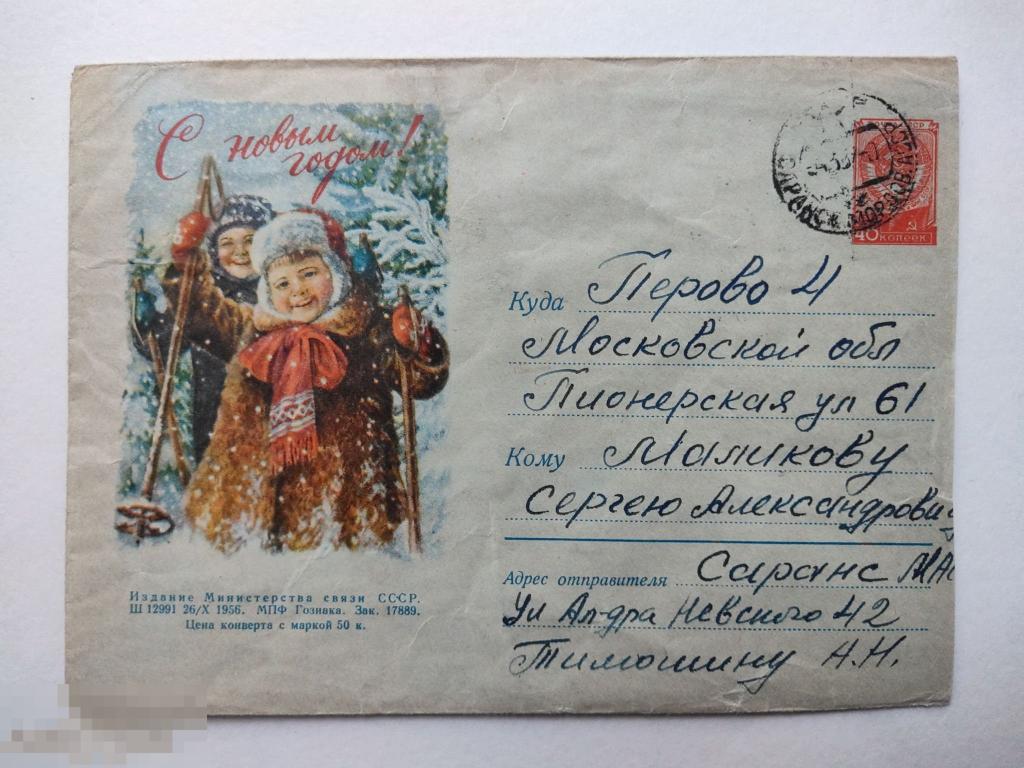 С новым
годом!
40 копеек
САРАНСК МОРДОВ. АССР
Куда Перово 4
Московской обл
Пионерская ул 61
Кому Маликову
Сергею Александрович
Адрес отправителя Саранс МАС
Ул Ал-дра Невского 42
Тимошину А.Н.
Издание Министерства связи СССР.
Ш 12991 26/X 1956. МПФ Гознака. Зак. 17889.
Цена конверта с маркой 50 к.